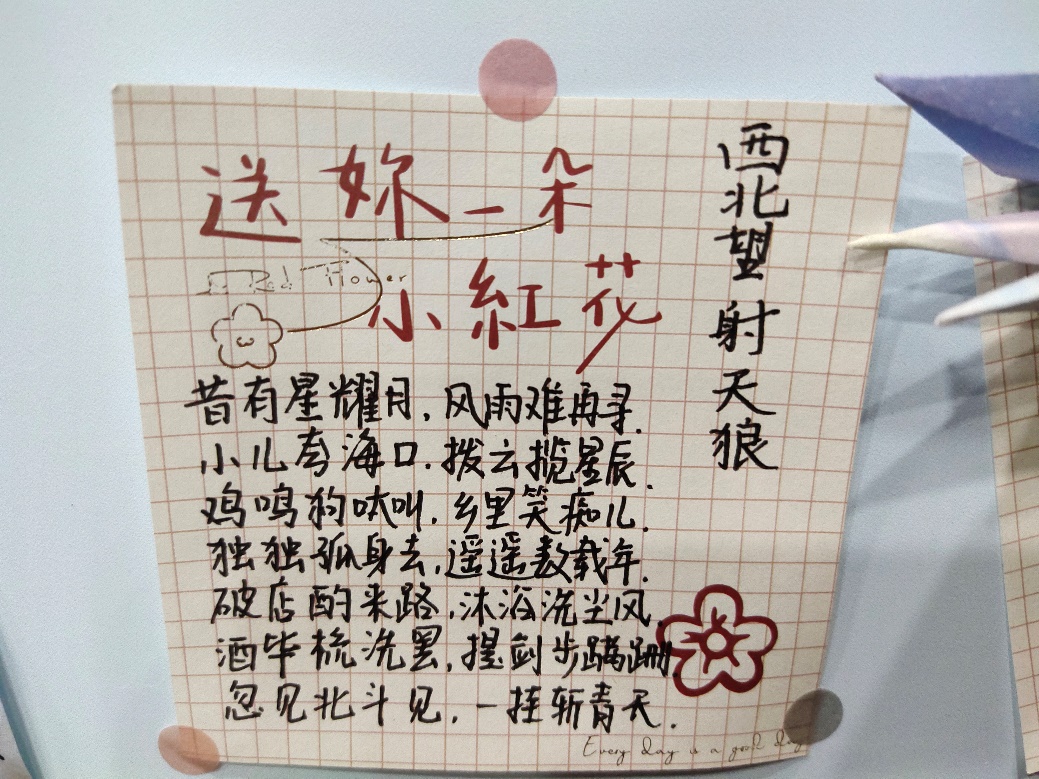 送妳一朵
Red Flower
小紅花
西北望射天狼
昔有星耀月，风雨难再寻.
小儿夸海口.拨云揽星辰.
鸡鸣狗吠叫.乡里笑痴儿.
独独孤身去,遥遥数载年.
破店酌来路,沐浴洗尘风.
酒毕梳洗罢,提剑步蹒跚.
忽见北斗见,一挂斩青天.
Every day is a good day